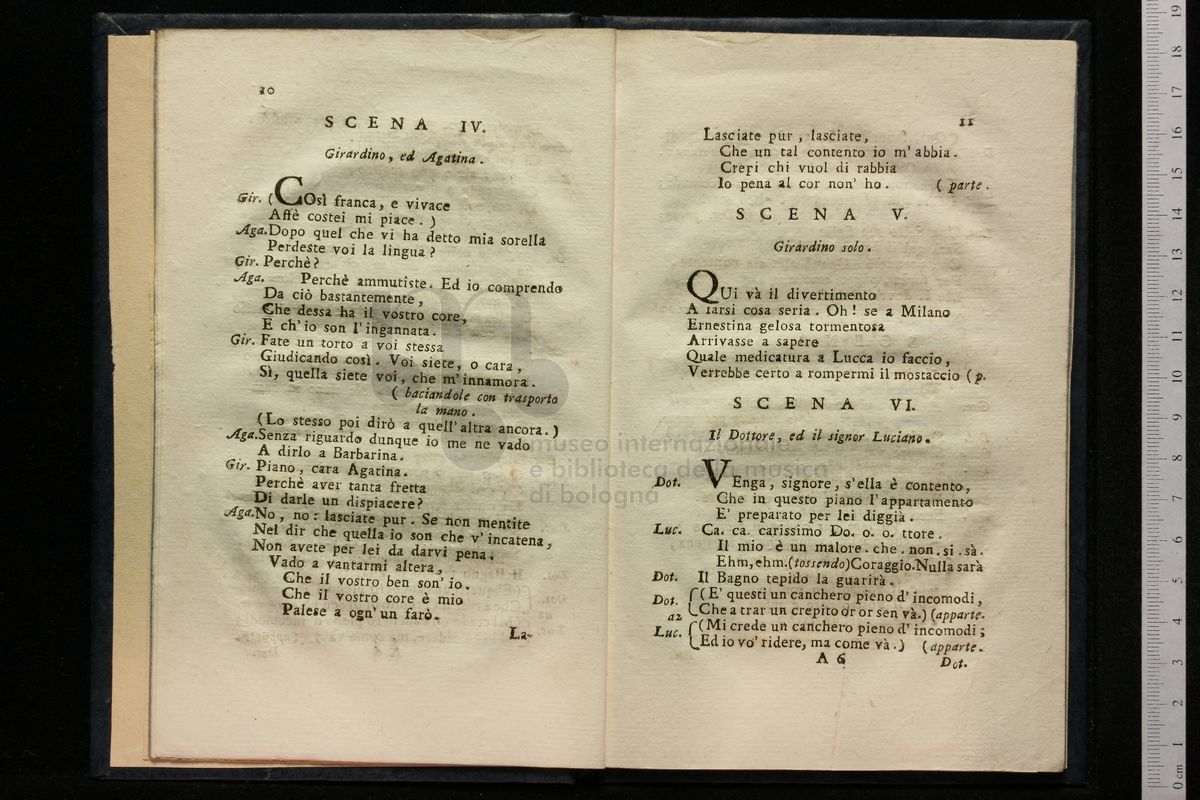 10
SCENA IV.
Girardino, ed Agatina.
Gir. (Così franca, e vivace
Affè costei mi piace.)
Aga. Dopo quel che vi ha detto mia sorella
Perdeste voi la lingua?
Gir. Perchè?
Aga. Perchè ammutiste. Ed io comprendo
Da ciò bastantemente,
Che dessa ha il vostro core,
E ch'io son l'ingannata.
Gir. Fate un torto a voi stessa
Giudicando così. Voi siete, o cara,
Sì, quella siete voi, che m'innamora.
( baciandole con trasporto
la mano.
(Lo stesso poi dirò a quell'altra ancora.)
Aga. Senza riguardo dunque io me ne vado
A dirlo a Barbarina.
Gir. Piano, cara Agatina.
Perchè aver tanta fretta
Di darle un dispiacere?
Aga. No, no: lasciate pur. Se non mentite
Nel dir che quella io son che v'incatena,
Non avete per lei da darvi pena.
Vado a vantarmi altera,
Che il vostro ben son'io.
Che il vostro core è mio
Palese a ogn'un farò.
La-
11
Lasciate pur, lasciate,
Che un tal contento io m'abbia.
Crepi chi vuol di rabbia
Io pena al cor non' ho. ( parte.
SCENA V.
Girardino solo.
QUi và il divertimento
A farsi cosa seria. Oh! se a Milano
Ernestina gelosa tormentosa
Arrivasse a sapere
Quale medicatura a Lucca io faccio,
Verrebbe certo a rompermi il mostaccio (p.
SCENA VI.
Il Dottore, ed il signor Luciano.
Dot. VEnga, signore, s'ella è contento,
Che in questo piano l'appartamento
E' preparato per lei diggià.
Luc. Ca. ca. carissimo Do. o. o. ttore.
Il mio è un malore. che. non. si. sà.
Ehm, ehm. (tossendo) Coraggio. Nulla sarà
Dot. Il Bagno tepido la guarirà.
Dot. (E' questi un canchero pieno d'incomodi,
a2 Che a trar un crepito or or sen và.) (apparte.
Luc. (Mi crede un canchero pieno d'incomodi;
Ed io vo' ridere, ma come và.) (apparte.
A 6 Dot.
museo internazionale
e biblioteca della musica
di bologna
0 cm 1 2 3 4 5 6 7 8 9 10 11 12 13 14 15 16 17 18 19